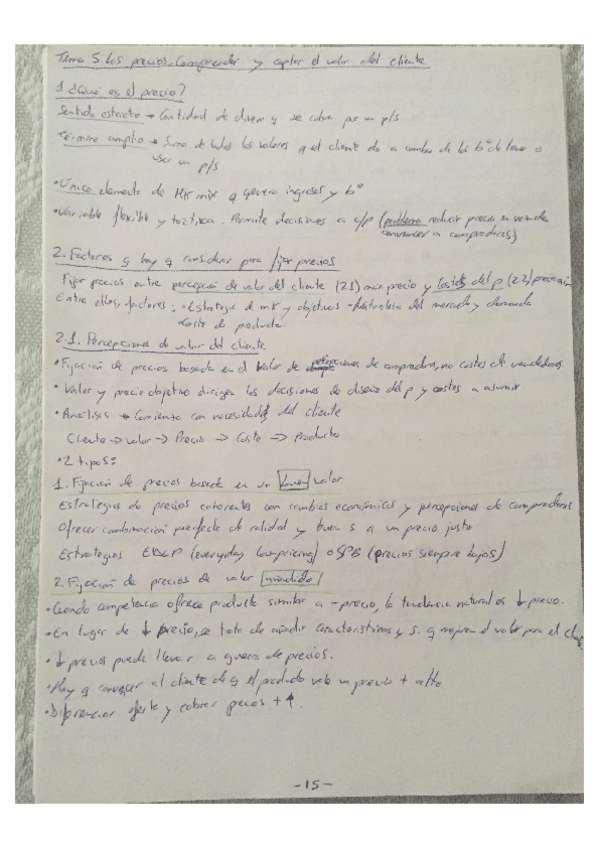 Tema 5: Los precios. Comprender y captar el valor del cliente
1. ¿Qué es el precio?
Sentido estricto → Cantidad de dinero q se cobra por un p/s
Término amplio → Suma de todos los valores q el cliente da a cambio de los bº de tener o
usar un p/s
• Único elemento de MK mix q genera ingresos y bº
• Variable flexible y táctica. Permite decisiones a c/p (problema reducir precio en vez de
convencer a compradores)
2. Factores q hay q considerar para fijar precios
Fijar precios entre percepción de valor del cliente (2.1) max precio y costes del p (2.2) precio min
Entre ellos, factores: • Estrategia de mk y objetivos • Naturaleza del mercado y demanda
• Costo de producto
2.1. Percepciones de valor del cliente
• Fijación de precios basada en el valor de percepciones de compradores, no costes de vendedores.
• Valor y precio objetivo dirigen las decisiones de diseño del p y costes a asumir.
• Análisis → Comienza con necesidades del cliente
Cliente → valor → Precio → Coste → Producto
• 2 tipos:
1. Fijación de precios basada en un buen valor
Estrategias de precios coherentes con cambios económicos y percepciones de compradores
Ofrecer combinación perfecta de calidad y buen s a un precio justo
Estrategias EDLP (everyday low-pricing) o SPB (precios siempre bajos)
2. Fijación de precios de valor añadido
• Cuando competencia ofrece producto similar a - precio, la tendencia natural es ↓ precio.
• En lugar de ↓ precio, se trata de añadir características y s. q mejoren el valor para el cliente
• ↓ precios puede llevar a guerra de precios.
• Hay q convencer al cliente de q el producto vale un precio + alto
• Diferenciar oferta y cobrar precios + ↑.
-15-